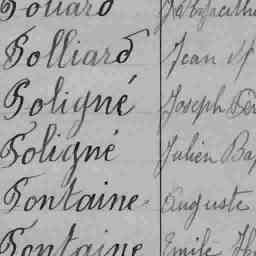 Foliard
Folliard Jean M
Foligné Joseph
Foligné Julien Bap
Fontaine Auguste
Fontaine Emile